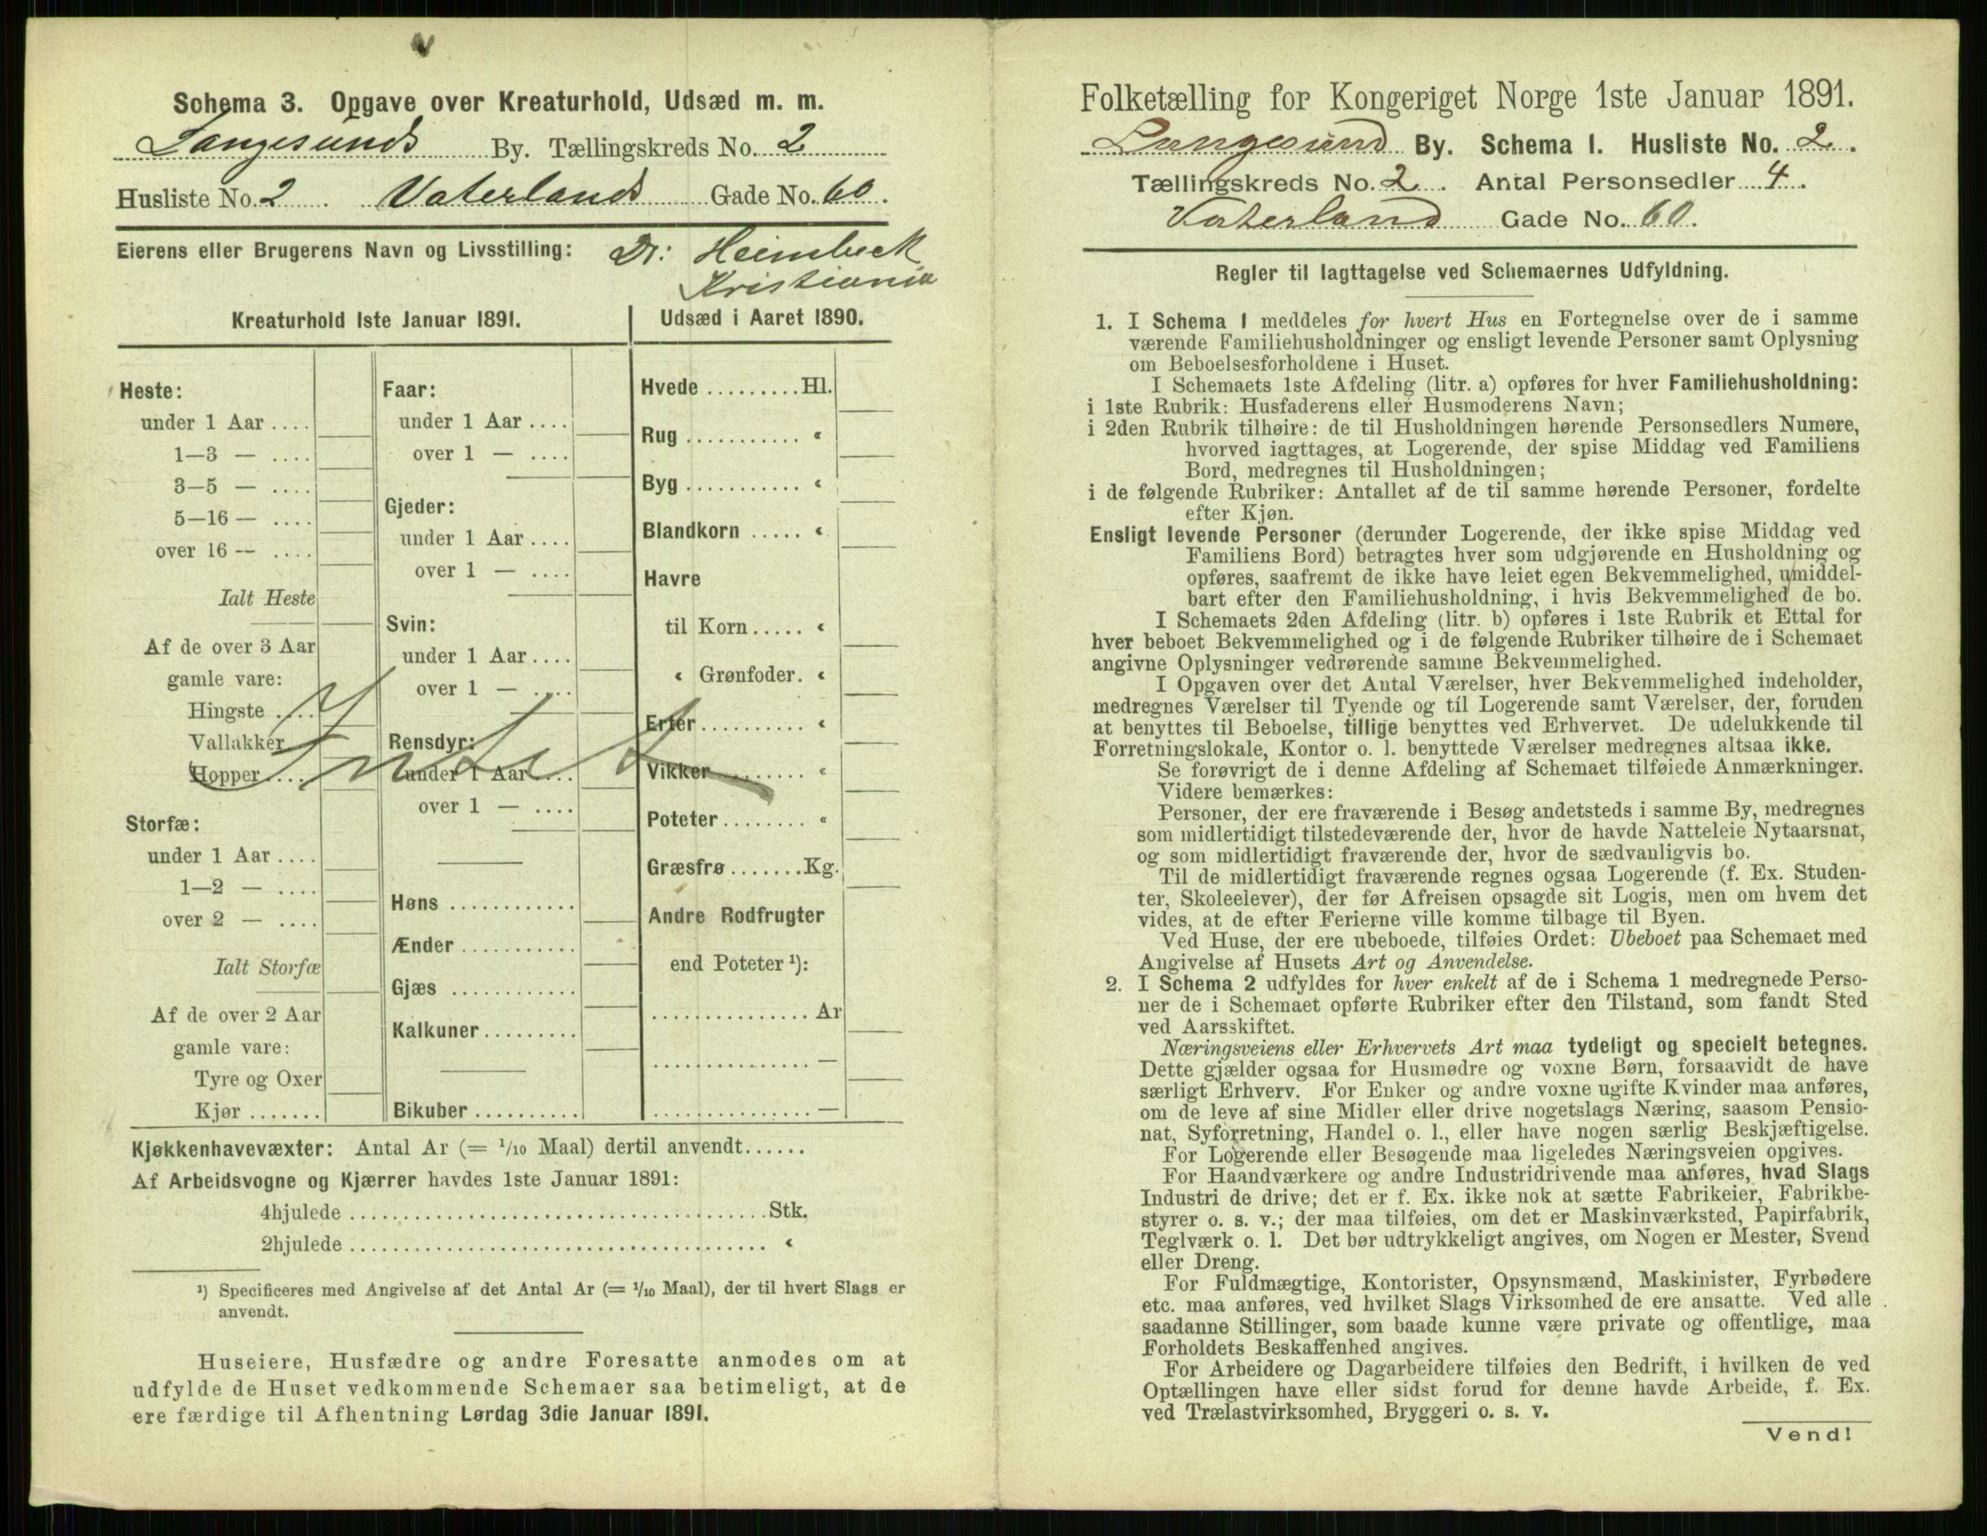 Schema 3. Opgave over Kreaturhold, Udsæd m. m.
Langesunds By. Tællingskreds No. 2
Husliste No. 2. Vaterlands Gade No. 60.
Eierens eller Brugerens Navn og Livsstilling: Dr: Heimbeck
Kristiania
Kreaturhold 1ste Januar 1891.
Heste:
under 1 Aar ....
1—3 — ....
3—5 — ....
5—16 — ....
over 16 — ....
Ialt Heste
Af de over 3 Aar
gamle vare:
Hingste ....
Vallakker
Hopper ....
Storfæ:
under 1 Aar ....
1—2 — ....
over 2 — ....
Ialt Storfæ
Af de over 2 Aar
gamle vare:
Tyre og Oxer
Kjør .......
Faar:
under 1 Aar ....
over 1 — ....
Gjeder:
under 1 Aar ....
over 1 — ....
Svin:
under 1 Aar ....
over 1 — ....
Rensdyr:
under 1 Aar ....
over 1 — ....
Høns ............
Ænder ...........
Gjæs ............
Kalkuner.........
Bikuber ..........
Intet
Udsæd i Aaret 1890.
Hvede .........Hl.
Rug ........... "
Byg ........... "
Blandkorn ..... "
Havre
til Korn ..... "
" Grønfoder. "
Erter .......... "
Vikker ......... "
Poteter ........ "
Græsfrø .......Kg.
Andre Rodfrugter
end Poteter ¹):
............... Ar
............... —
............... —
Kjøkkenhavevæxter: Antal Ar (= 1/10 Maal) dertil anvendt......
Af Arbeidsvogne og Kjærrer havdes 1ste Januar 1891:
4hjulede .......................................Stk.
2hjulede ....................................... "
¹) Specificeres med Angivelse af det Antal Ar (= 1/10 Maal), der til hvert Slags er
anvendt.
Huseiere, Husfædre og andre Foresatte anmodes om at
udfylde de Huset vedkommende Schemaer saa betimeligt, at de
ere færdige til Afhentning Lørdag 3die Januar 1891.
Folketælling for Kongeriget Norge 1ste Januar 1891.
Langesund By. Schema 1. Husliste No. 2.
Tællingskreds No. 2. Antal Personsedler 4.
Vaterland Gade No. 60.
Regler til Iagttagelse ved Schemaernes Udfyldning.
1. I Schema 1 meddeles for hvert Hus en Fortegnelse over de i samme
værende Familiehusholdninger og ensligt levende Personer samt Oplysning
om Beboelsesforholdene i Huset.
I Schemaets 1ste Afdeling (litr. a) opføres for hver Familiehusholdning:
i 1ste Rubrik: Husfaderens eller Husmoderens Navn;
i 2den Rubrik tilhøire: de til Husholdningen hørende Personsedlers Numere,
hvorved iagttages, at Logerende, der spise Middag ved Familiens
Bord, medregnes til Husholdningen;
i de følgende Rubriker: Antallet af de til samme hørende Personer, fordelte
efter Kjøn.
Ensligt levende Personer (derunder Logerende, der ikke spise Middag ved
Familiens Bord) betragtes hver som udgjørende en Husholdning og
opføres, saafremt de ikke have leiet egen Bekvemmelighed, umiddel-
bart efter den Familiehusholdning, i hvis Bekvemmelighed de bo.
I Schemaets 2den Afdeling (litr. b) opføres i 1ste Rubrik et Ettal for
hver beboet Bekvemmelighed og i de følgende Rubriker tilhøire de i Schemaet
angivne Oplysninger vedrørende samme Bekvemmelighed.
I Opgaven over det Antal Værelser, hver Bekvemmelighed indeholder,
medregnes Værelser til Tyende og til Logerende samt Værelser, der, foruden
at benyttes til Beboelse, tillige benyttes ved Erhvervet. De udelukkende til
Forretningslokale, Kontor o. l. benyttede Værelser medregnes altsaa ikke.
Se forøvrigt de i denne Afdeling af Schemaet tilføiede Anmærkninger.
Videre bemærkes:
Personer, der ere fraværende i Besøg andetsteds i samme By, medregnes
som midlertidigt tilstedeværende der, hvor de havde Natteleie Nytaarsnat,
og som midlertidigt fraværende der, hvor de sædvanligvis bo.
Til de midlertidigt fraværende regnes ogsaa Logerende (f. Ex. Studen-
ter, Skoleelever), der før Afreisen opsagde sit Logis, men om hvem det
vides, at de efter Ferierne ville komme tilbage til Byen.
Ved Huse, der ere ubeboede, tilføies Ordet: Ubeboet paa Schemaet med
Angivelse af Husets Art og Anvendelse.
2. I Schema 2 udfyldes for hver enkelt af de i Schema 1 medregnede Perso-
ner de i Schemaet opførte Rubriker efter den Tilstand, som fandt Sted
ved Aarsskiftet.
Næringsveiens eller Erhvervets Art maa tydeligt og specielt betegnes.
Dette gjælder ogsaa for Husmødre og voxne Børn, forsaavidt de have
særligt Erhverv. For Enker og andre voxne ugifte Kvinder maa anføres,
om de leve af sine Midler eller drive nogetslags Næring, saasom Pensio-
nat, Syforretning, Handel o. l., eller have nogen særlig Beskjæftigelse.
For Logerende eller Besøgende maa ligeledes Næringsveien opgives.
For Haandværkere og andre Industridrivende maa anføres, hvad Slags
Industri de drive; det er f. Ex. ikke nok at sætte Fabrikeier, Fabrikbe-
styrer o. s. v.; der maa tilføies, om det er Maskinværksted, Papirfabrik,
Teglværk o. l. Det bør udtrykkeligt angives, om Nogen er Mester, Svend
eller Dreng.
For Fuldmægtige, Kontorister, Opsynsmænd, Maskinister, Fyrbødere
etc. maa anføres, ved hvilket Slags Virksomhed de ere ansatte. Ved alle
saadanne Stillinger, som baade kunne være private og offentlige, maa
Forholdets Beskaffenhed angives.
For Arbeidere og Dagarbeidere tilføies den Bedrift, i hvilken de ved
Optællingen have eller sidst forud for denne havde Arbeide, f. Ex.
ved Trælastvirksomhed, Bryggeri o. s. v.
Vend!